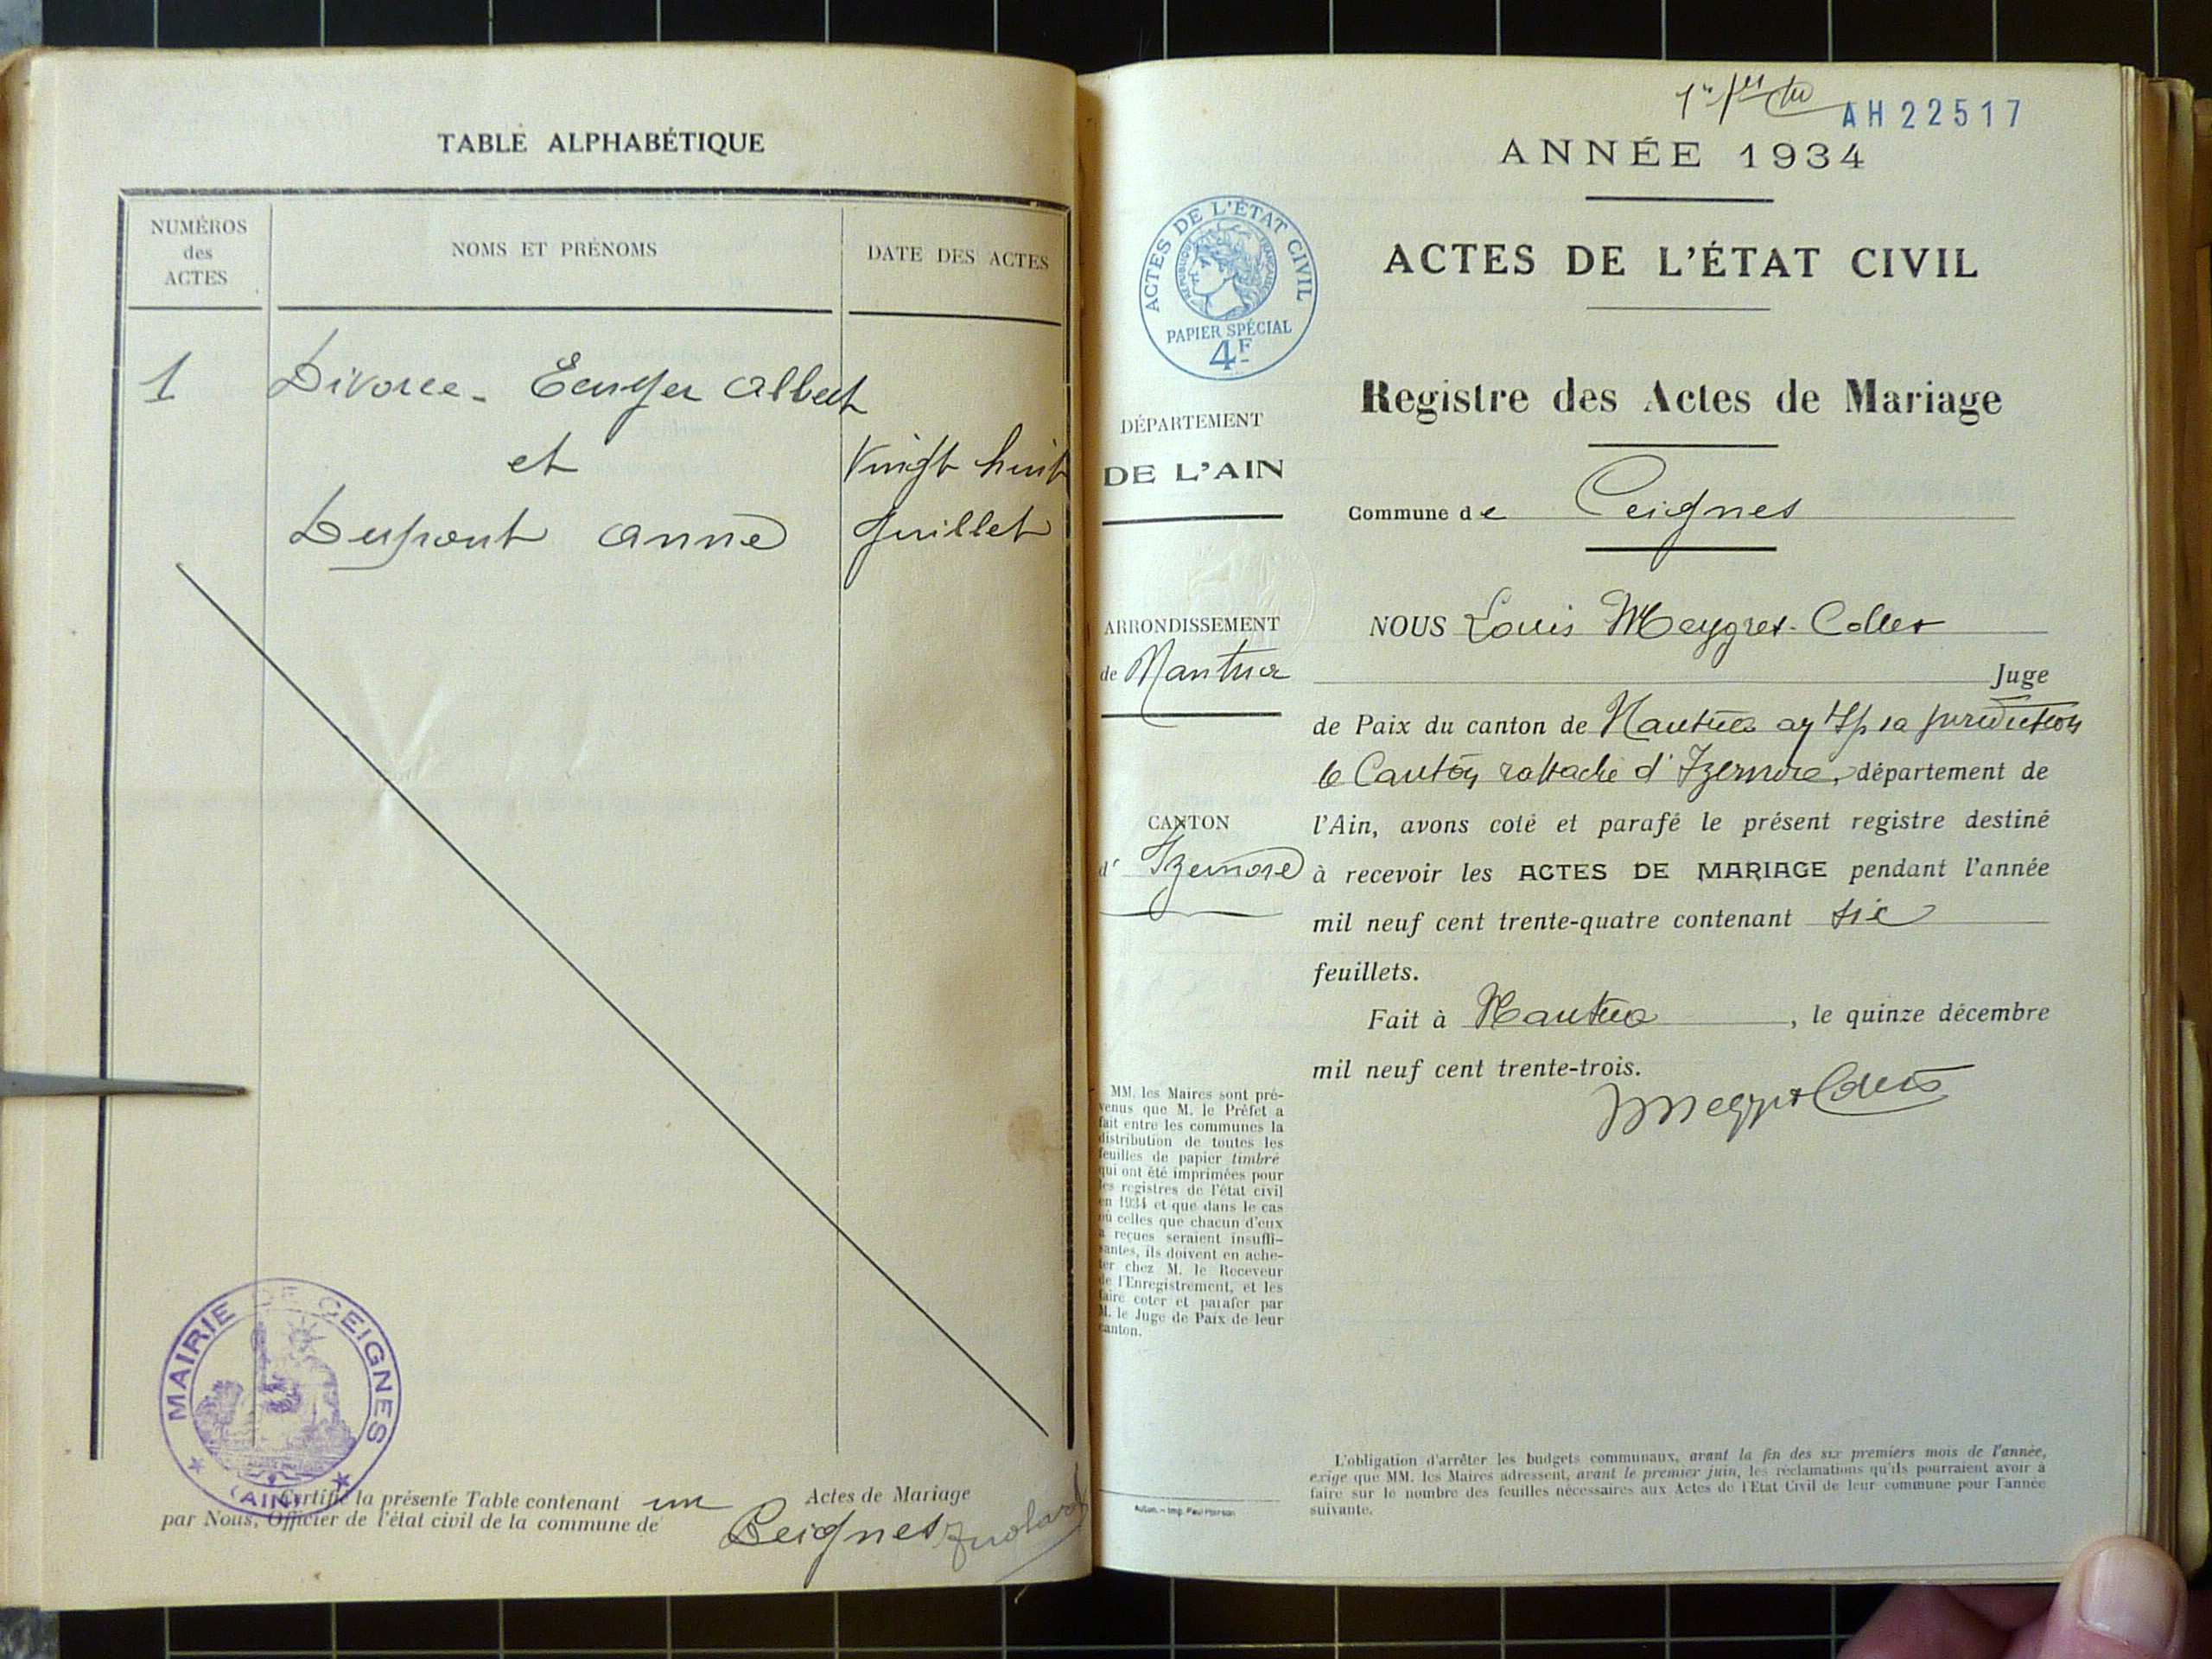 TABLE ALPHABÉTIQUE
NUMÉROS
des
ACTES
NOMS ET PRÉNOMS
DATE DES ACTES
1
Divorce - Albert
et
Vingt huit
Dupont Anne
Juillet
MAIRIE DE CEIGNES
(AIN)
Certifié la présente Table contenant un Actes de Mariage
par Nous, Officier de l'état civil de la commune de Ceignes
AH 22517
ANNÉE 1934
ACTES DE L'ÉTAT CIVIL
RÉPUBLIQUE FRANÇAISE
PAPIER SPÉCIAL
4F
ACTES DE L'ÉTAT CIVIL
Registre des Actes de Mariage
DÉPARTEMENT
DE L'AIN
Commune de Ceignes
ARRONDISSEMENT
de Nantua
CANTON
d' Izernore
NOUS Louis Meygret-Collet
Juge
de Paix du canton de Nantua ay sa juridiction
le Canton rattaché d'Izernore, département de
l'Ain, avons coté et parafé le présent registre destiné
à recevoir les ACTES DE MARIAGE pendant l'année
mil neuf cent trente-quatre contenant six
feuillets.
Fait à Nantua, le quinze décembre
mil neuf cent trente-trois.
MM. les Maires sont pré-
venus que M. le Préfet a
fait entre les communes la
distribution de toutes les
feuilles de papier timbré
qui ont été imprimées pour
les registres de l'état civil
en 1934 et que dans le cas
où celles que chacun d'eux
a reçues seraient insuffi-
santes, ils doivent en ache-
ter chez M. le Receveur
de l'Enregistrement, et les
faire coter et parafer par
M. le Juge de Paix de leur
canton.
L'obligation d'arrêter les budgets communaux, avant la fin des six premiers mois de l'année,
exige que MM. les Maires adressent, avant le premier juin, les réclamations qu'ils pourraient avoir à
faire sur le nombre des feuilles nécessaires aux Actes de l'Etat Civil de leur commune pour l'année
suivante.